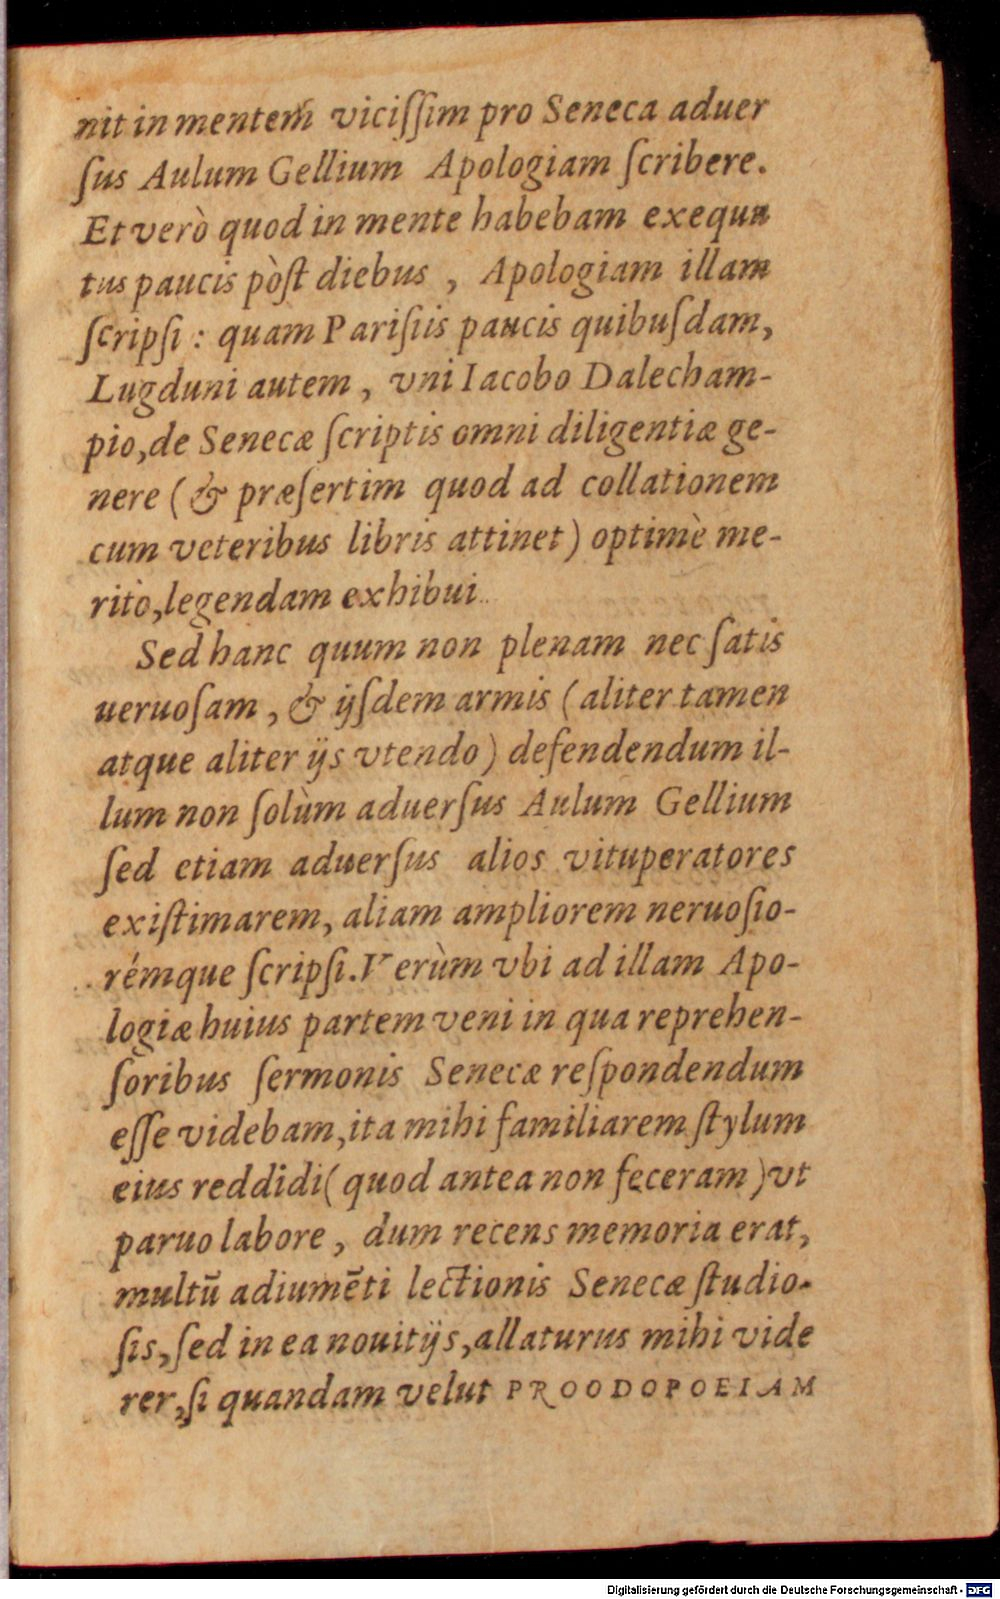 nit in mentem vicissim pro Seneca aduer
ſus Aulum Gellium Apologiam ſcribere.
Et verò quod in mente habebam exequu
tus paucis pòſt diebus , Apologiam illam
ſcripſi : quam Pariſiis paucis quibuſdam,
Lugduni autem , vni Iacobo Dalecham-
pio,de Senecæ ſcriptis omni diligentiæ ge-
nere (& præſertim quod ad collationem
cum veteribus libris attinet) optimè me-
rito,legendam exhibui.
Sed hanc quum non plenam nec ſatis
ueruoſam , & ijſdem armis (aliter tamen
atque aliter ijs vtendo) defendendum il-
lum non ſolùm aduerſus Aulum Gellium
ſed etiam aduerſus alios vituperatores
exiſtimarem, aliam ampliorem neruoſio-
rémque ſcripſi.Verùm vbi ad illam Apo-
logiæ huius partem veni in qua reprehen-
ſoribus ſermonis Senecæ reſpondendum
eſſe videbam,ita mihi familiarem ſtylum
eius reddidi(quod antea non feceram)vt
paruo labore , dum recens memoria erat,
multū adiumēti lectionis Senecæ ſtudio-
ſis,ſed in ea nouitijs,allaturus mihi vide
rer,ſi quandam velut PROODOPOEIAM
Digitalisierung gefördert durch die Deutsche Forschungsgemeinschaft - DFG